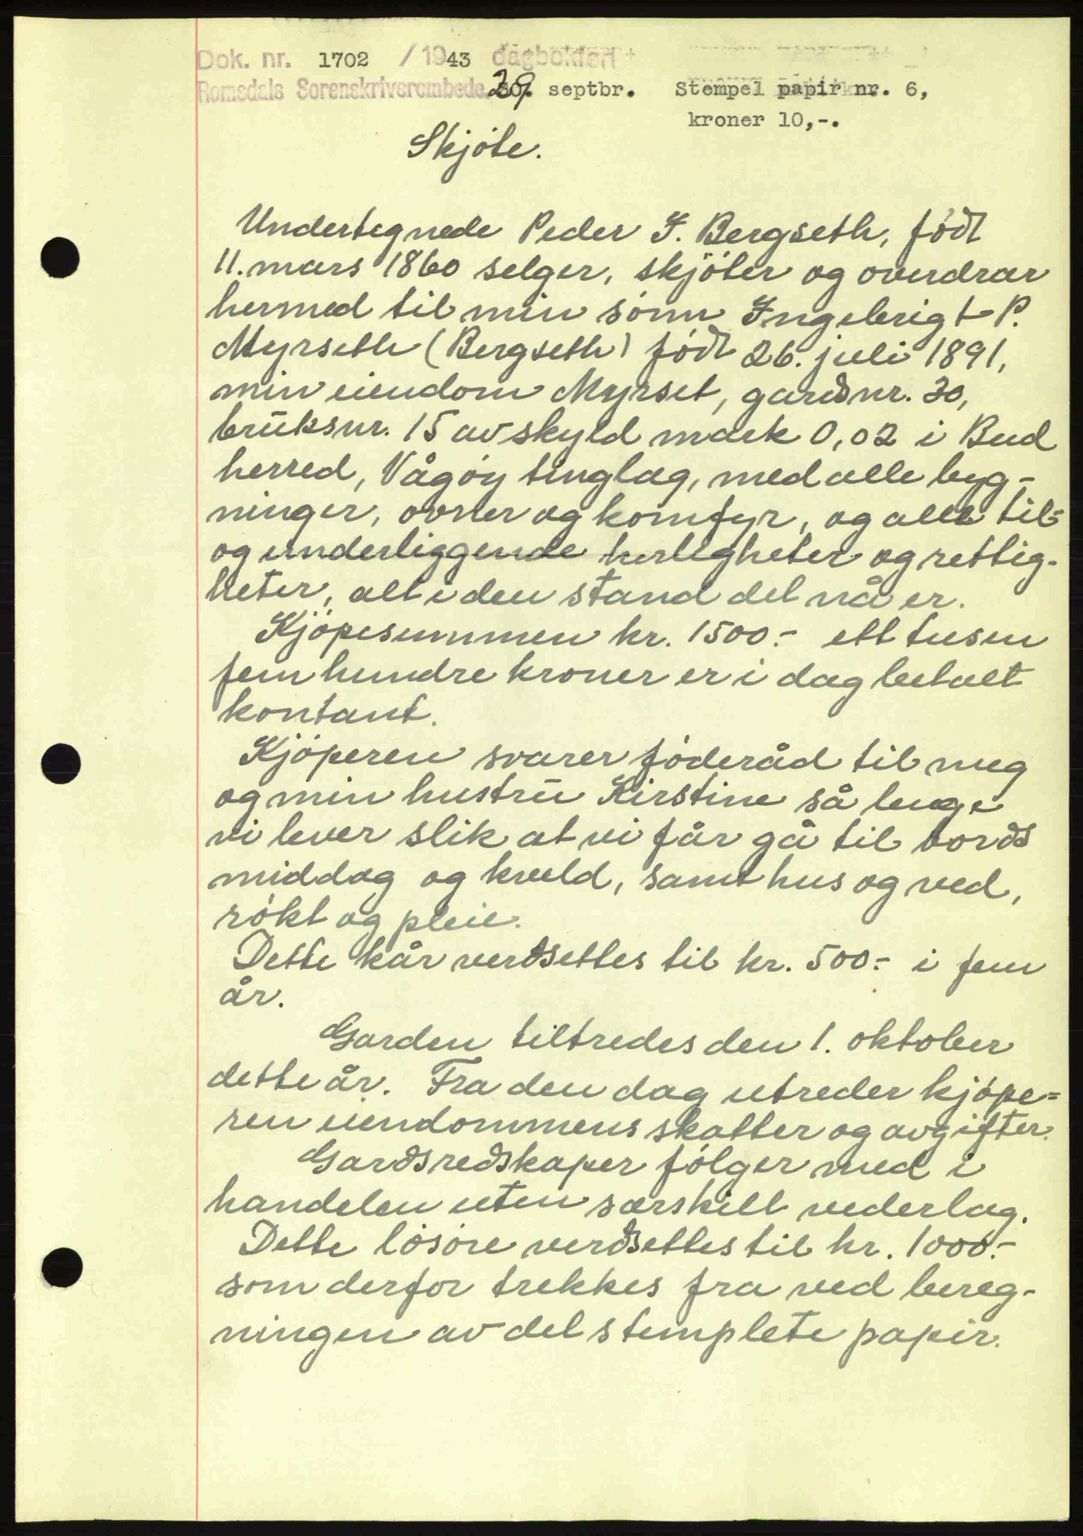 Dok. nr. 1702 /1943 dagbokført
Romsdals Sorenskriverembede 29. septbr. Stempel papir nr. 6,
kroner 10,-.
Skjøte.
Undertegnede Peder I. Bergseth, født
11. mars 1860 selger, skjøter og overdrar
hermed til min sønn Ingebrigt P.
Myrseth (Bergseth) født 26. juli 1891,
min eiendom Myrset, gardsnr. 30,
bruksnr. 15 av skyld mark 0,02 i Bud
herred, Vågøy tinglag, med alle byg-
ninger, ovner og komfyr, og alle til-
og underliggende herligheter og rettig-
heter, alt i den stand det nå er.
Kjøpesummen kr. 1500.- ett tusen
fem hundre kroner er i dag betalt
kontant.
Kjøperen svarer føderåd til meg
og min hustru Kirstine så lenge
vi lever slik at vi får gå til bords
middag og kveld, samt hus og ved,
røkt og pleie.
Dette kår verdsettes til kr. 500.- i fem
år.
Garden tiltredes den 1. oktober
dette år. Fra den dag utreder kjøpe=
ren eiendommens skatter og avgifter.
Gardsredskaper følger med i
handelen uten særskilt vederlag.
Dette løsøre verdsettes til kr. 1000.-
som derfor trekkes fra ved bereg-
ningen av det stemplete papir.